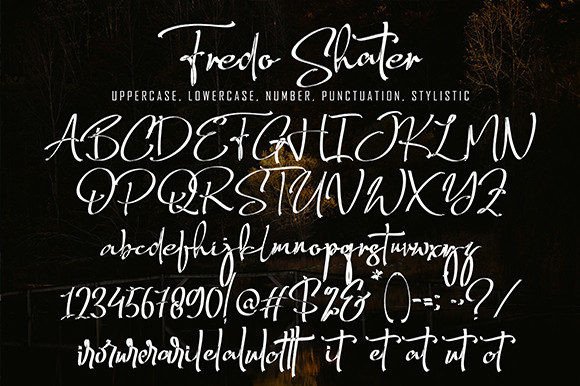 Fredo Shater
UPPERCASE, LOWERCASE, NUMBER, PUNCTUATION, STYLISTIC
ABCDEFGHIJKLMN
OPQRSTUVWXYZ
abcdefhijklmnopqrstuvwxyz
1234567890!@#$%&*()-=;:.,?/
it et at ut ot